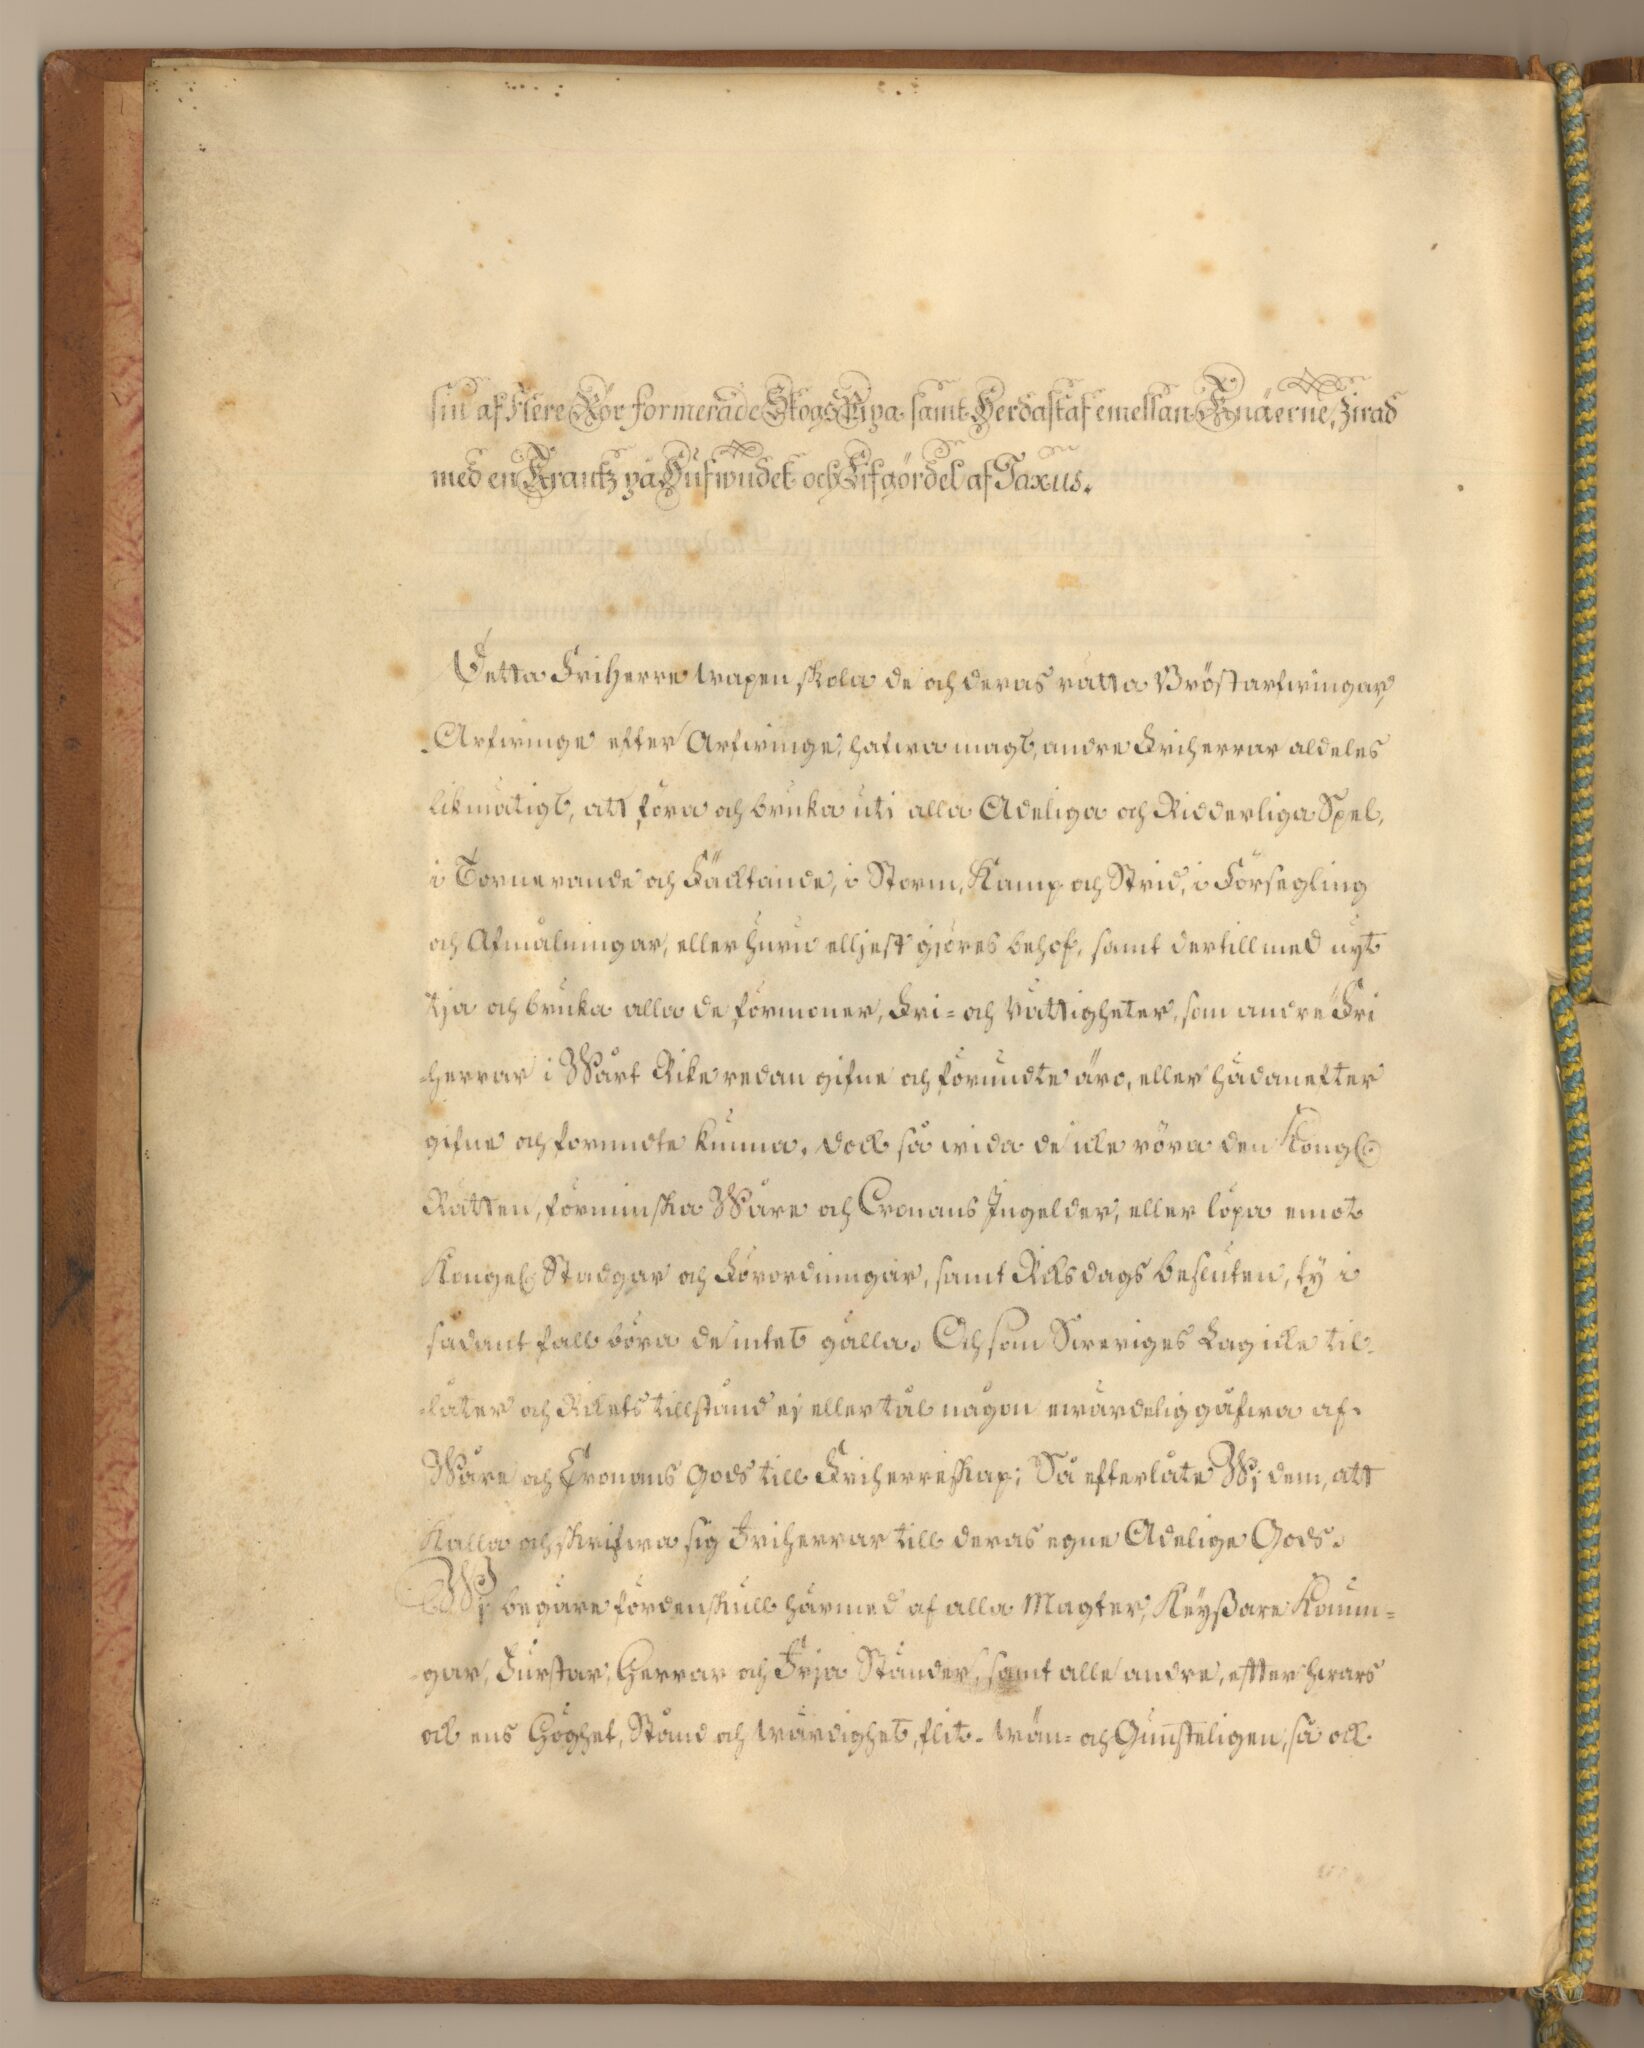 sin af flere Rör formerade Skogs Pipa samt Herdastaf emellan Knäerne, Zirad
med en Krantz på Hufwudet och Lifgördel af Taxus.
Detta Friherre wapen skola de och deras rätta Bröstarfwingar,
Arfwinge efter Arfwinge, hafwa magt, andre Friherrar aldeles
likmätigt, att föra och bruka uti alla Adeliga och Ridderliga Spel,
i Tornerande och Fäcktande, i Storm, Kamp och Strid, i Försegling
och Afmålningar, eller huru elljest gjöres behof, samt dertillmed nyt
tja och bruka alla de förmoner, Fri= och Rättigheter, som andre Fri
=herrar i Wårt Rike redan gifne och förundte äro, eller hädanefter
gifne och förundte kunna, dock så wida de icke röra den Kongl.
Rätten, förminska Wåre och Cronans Ingelder, eller löpa emot
Kongel. Stadgar och Förordningar, samt Riksdags besluten, ty i
sådant fall böra de intet gälla. Och som Sweriges Lag icke til-
=låter och Rikets tillstånd ej eller tål någon ewärdelig gåfwa af
Wåre och Cronans Gods till Friherreskap; Så efterlåte Wj dem, att
kalla och skrifwa sig Friherrar till deras egne Adelige Gods.
Wj begäre fördenskull härmed af alla Magter, Keyßare Konun=
=gar, Furstar, Herrar och Frja Ständer, samt alle andre, efter hwars
ock ens Höghet, Stånd och Wärdighet, flit- wän= och Gunsteligen, så ock